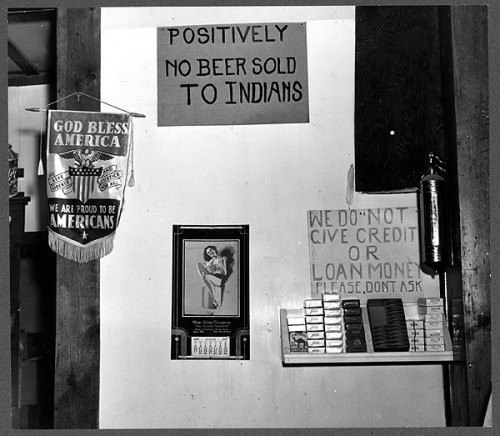 POSITIVELY
NO BEER SOLD
TO INDIANS
GOD BLESS
AMERICA
LIBERTY
AND
JUSTICE
FOR ALL
WE ARE PROUD TO BE
AMERICANS
WE DO NOT
GIVE CREDIT
OR
LOAN MONEY
PLEASE, DONT ASK